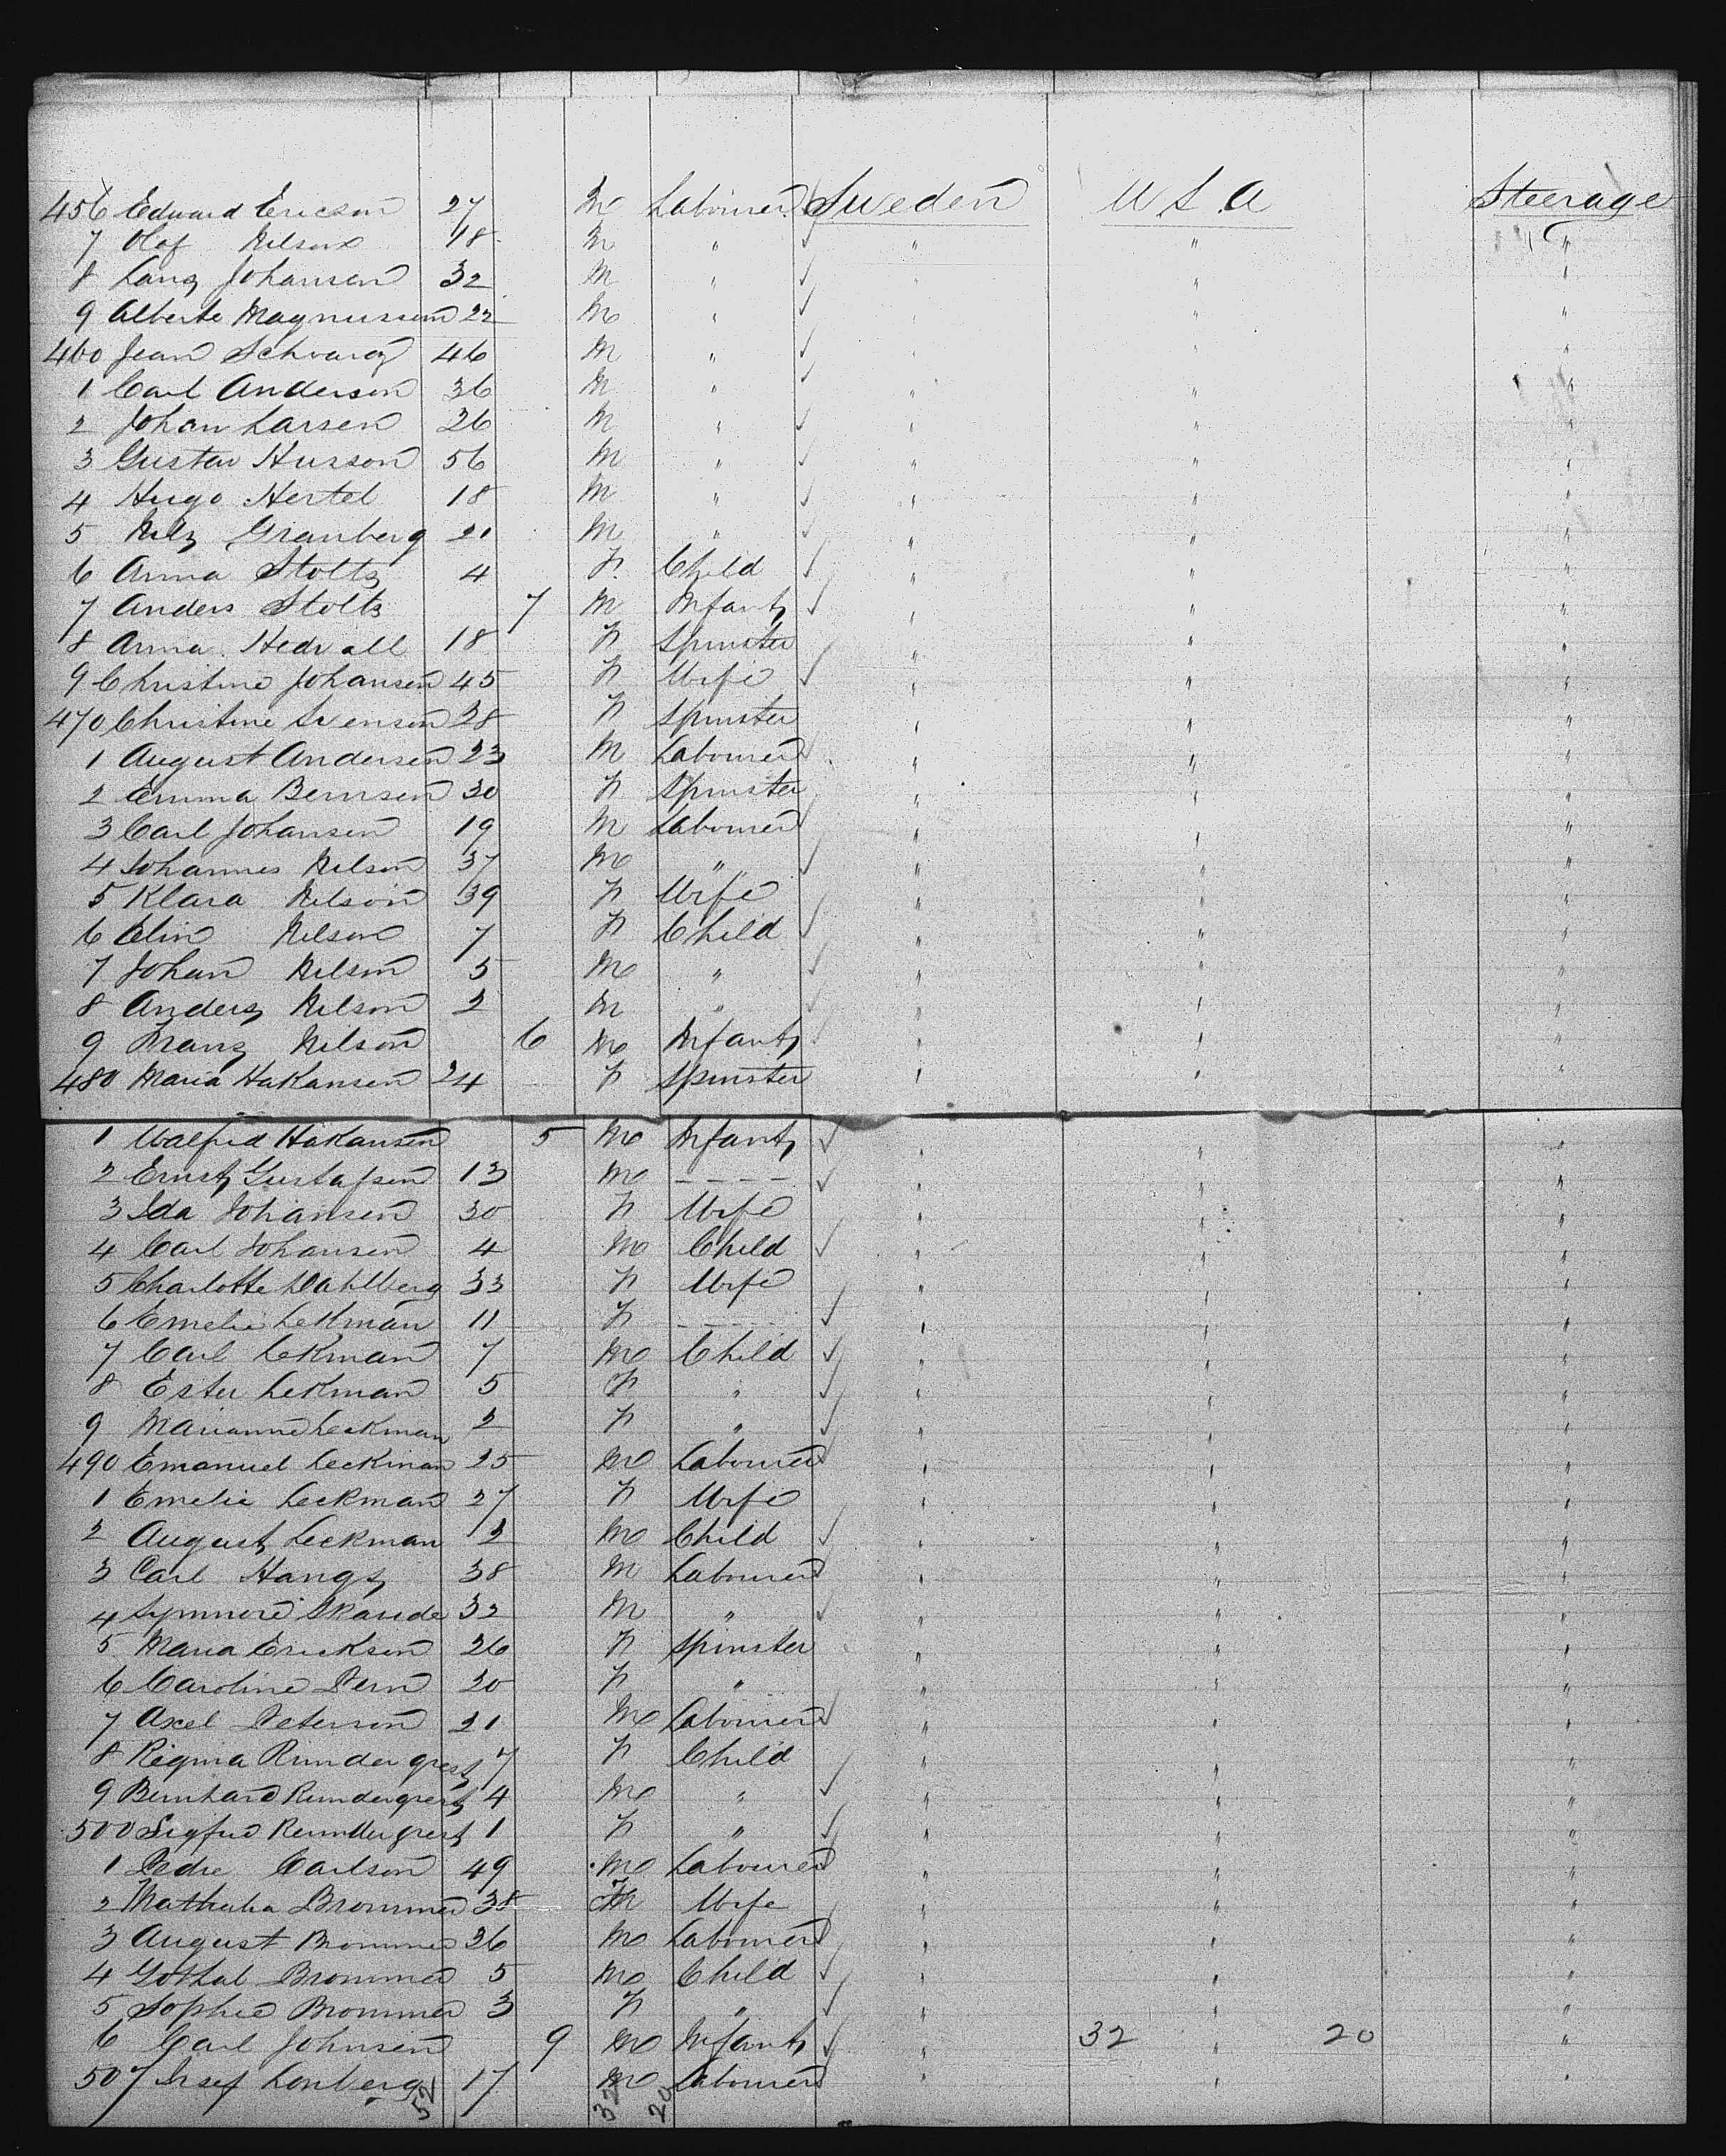 456 Edward Ericson 27 M Labourer Sweden U S A Steerage
7 Olof Nilson 18 M " " " "
8 Lang Johansen 32 M " " " "
9 Alberte Magnusson 22 M " " " "
460 Jean Schwarz 46 M " " " "
1 Carl Anderson 36 M " " " "
2 Johan Larsen 26 M " " " "
3 Gustav Husson 56 M " " " "
4 Hugo Hertel 18 M " " " "
5 Nils Granberg 21 M " " " "
6 Anna Stolts 4 F Child " " "
7 Anders Stolts 7 M Infant " " "
8 Anna Hedvall 18 F Spinster " " "
9 Christine Johansen 45 F Wife " " "
470 Christine Svenson 28 F Spinster " " "
1 August Andersen 23 M Labourer " " "
2 Emma Bernsen 30 F Spinster " " "
3 Carl Johansen 19 M Labourer " " "
4 Johannes Nilson 37 M " " " "
5 Klara Nilson 39 F Wife " " "
6 Elin Nilson 7 F Child " " "
7 Johan Nilson 5 M " " " "
8 Anders Nilson 2 M " " " "
9 Franz Nilson 6 M Infant " " "
480 Maria Hakansen 24 F Spinster " " "
1 Walfrid Hakansen 5 M Infant " " "
2 Ernst Gustafsen 13 M - - - - " " "
3 Ida Johansen 30 F Wife " " "
4 Carl Johansen 4 M Child " " "
5 Charlotte Dahlberg 33 F Wife " " "
6 Emelie Lekman 11 F - - - - " " "
7 Carl Lekman 7 M Child " " "
8 Ester Lekman 5 F " " " "
9 Marianne Leekman 2 F " " " "
490 Emanuel Leckman 25 M Labourer " " "
1 Emelie Leckman 27 F Wife " " "
2 August Leckman 2 M Child " " "
3 Carl Hangs 38 M Labourer " " "
4 Skande 32 M " " " "
5 Maria Erickson 26 F Spinster " " "
6 Caroline Pern 20 F " " " "
7 Axel Peterson 21 M Labourer " " "
8 Regina Rundergrest 7 F Child " " "
9 Bernhard Rundergrest 4 M " " " "
500 Sigfrid Rundergrest 1 F " " " "
1 Pedre Carlson 49 M Labourer " " "
2 Brommer 38 F Wife " " "
3 August Brommer 36 M Labourer " " "
4 Brommer 5 M Child " " "
5 Sophie Brommer 3 F " " " "
6 Carl Johnsen 9 M Infant " 32 " 20 "
507 Josef Lonberg 17 M Labourer " " "
52 32 20